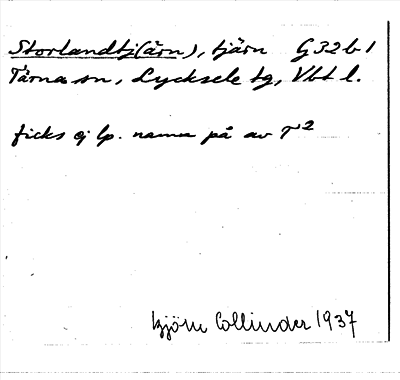 Storlandtj(ärn), tjärn G 32 b 1
Tärna sn, Lycksele tg, Vbt l.
ficks ej lp. namn på av T²
Björn Collinder 1937